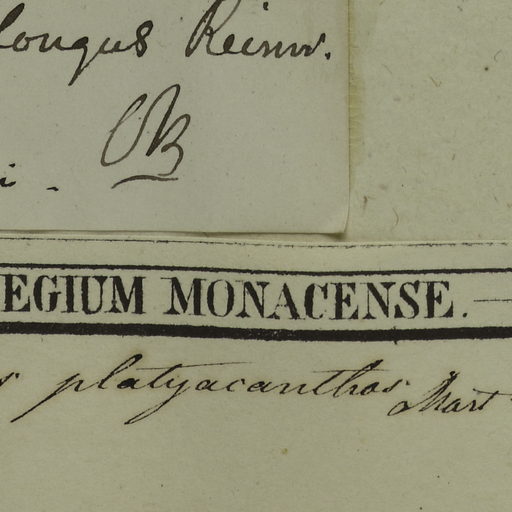 longus Reinw.
OB
i.
EGIUM MONACENSE.
s platyacanthos Mart